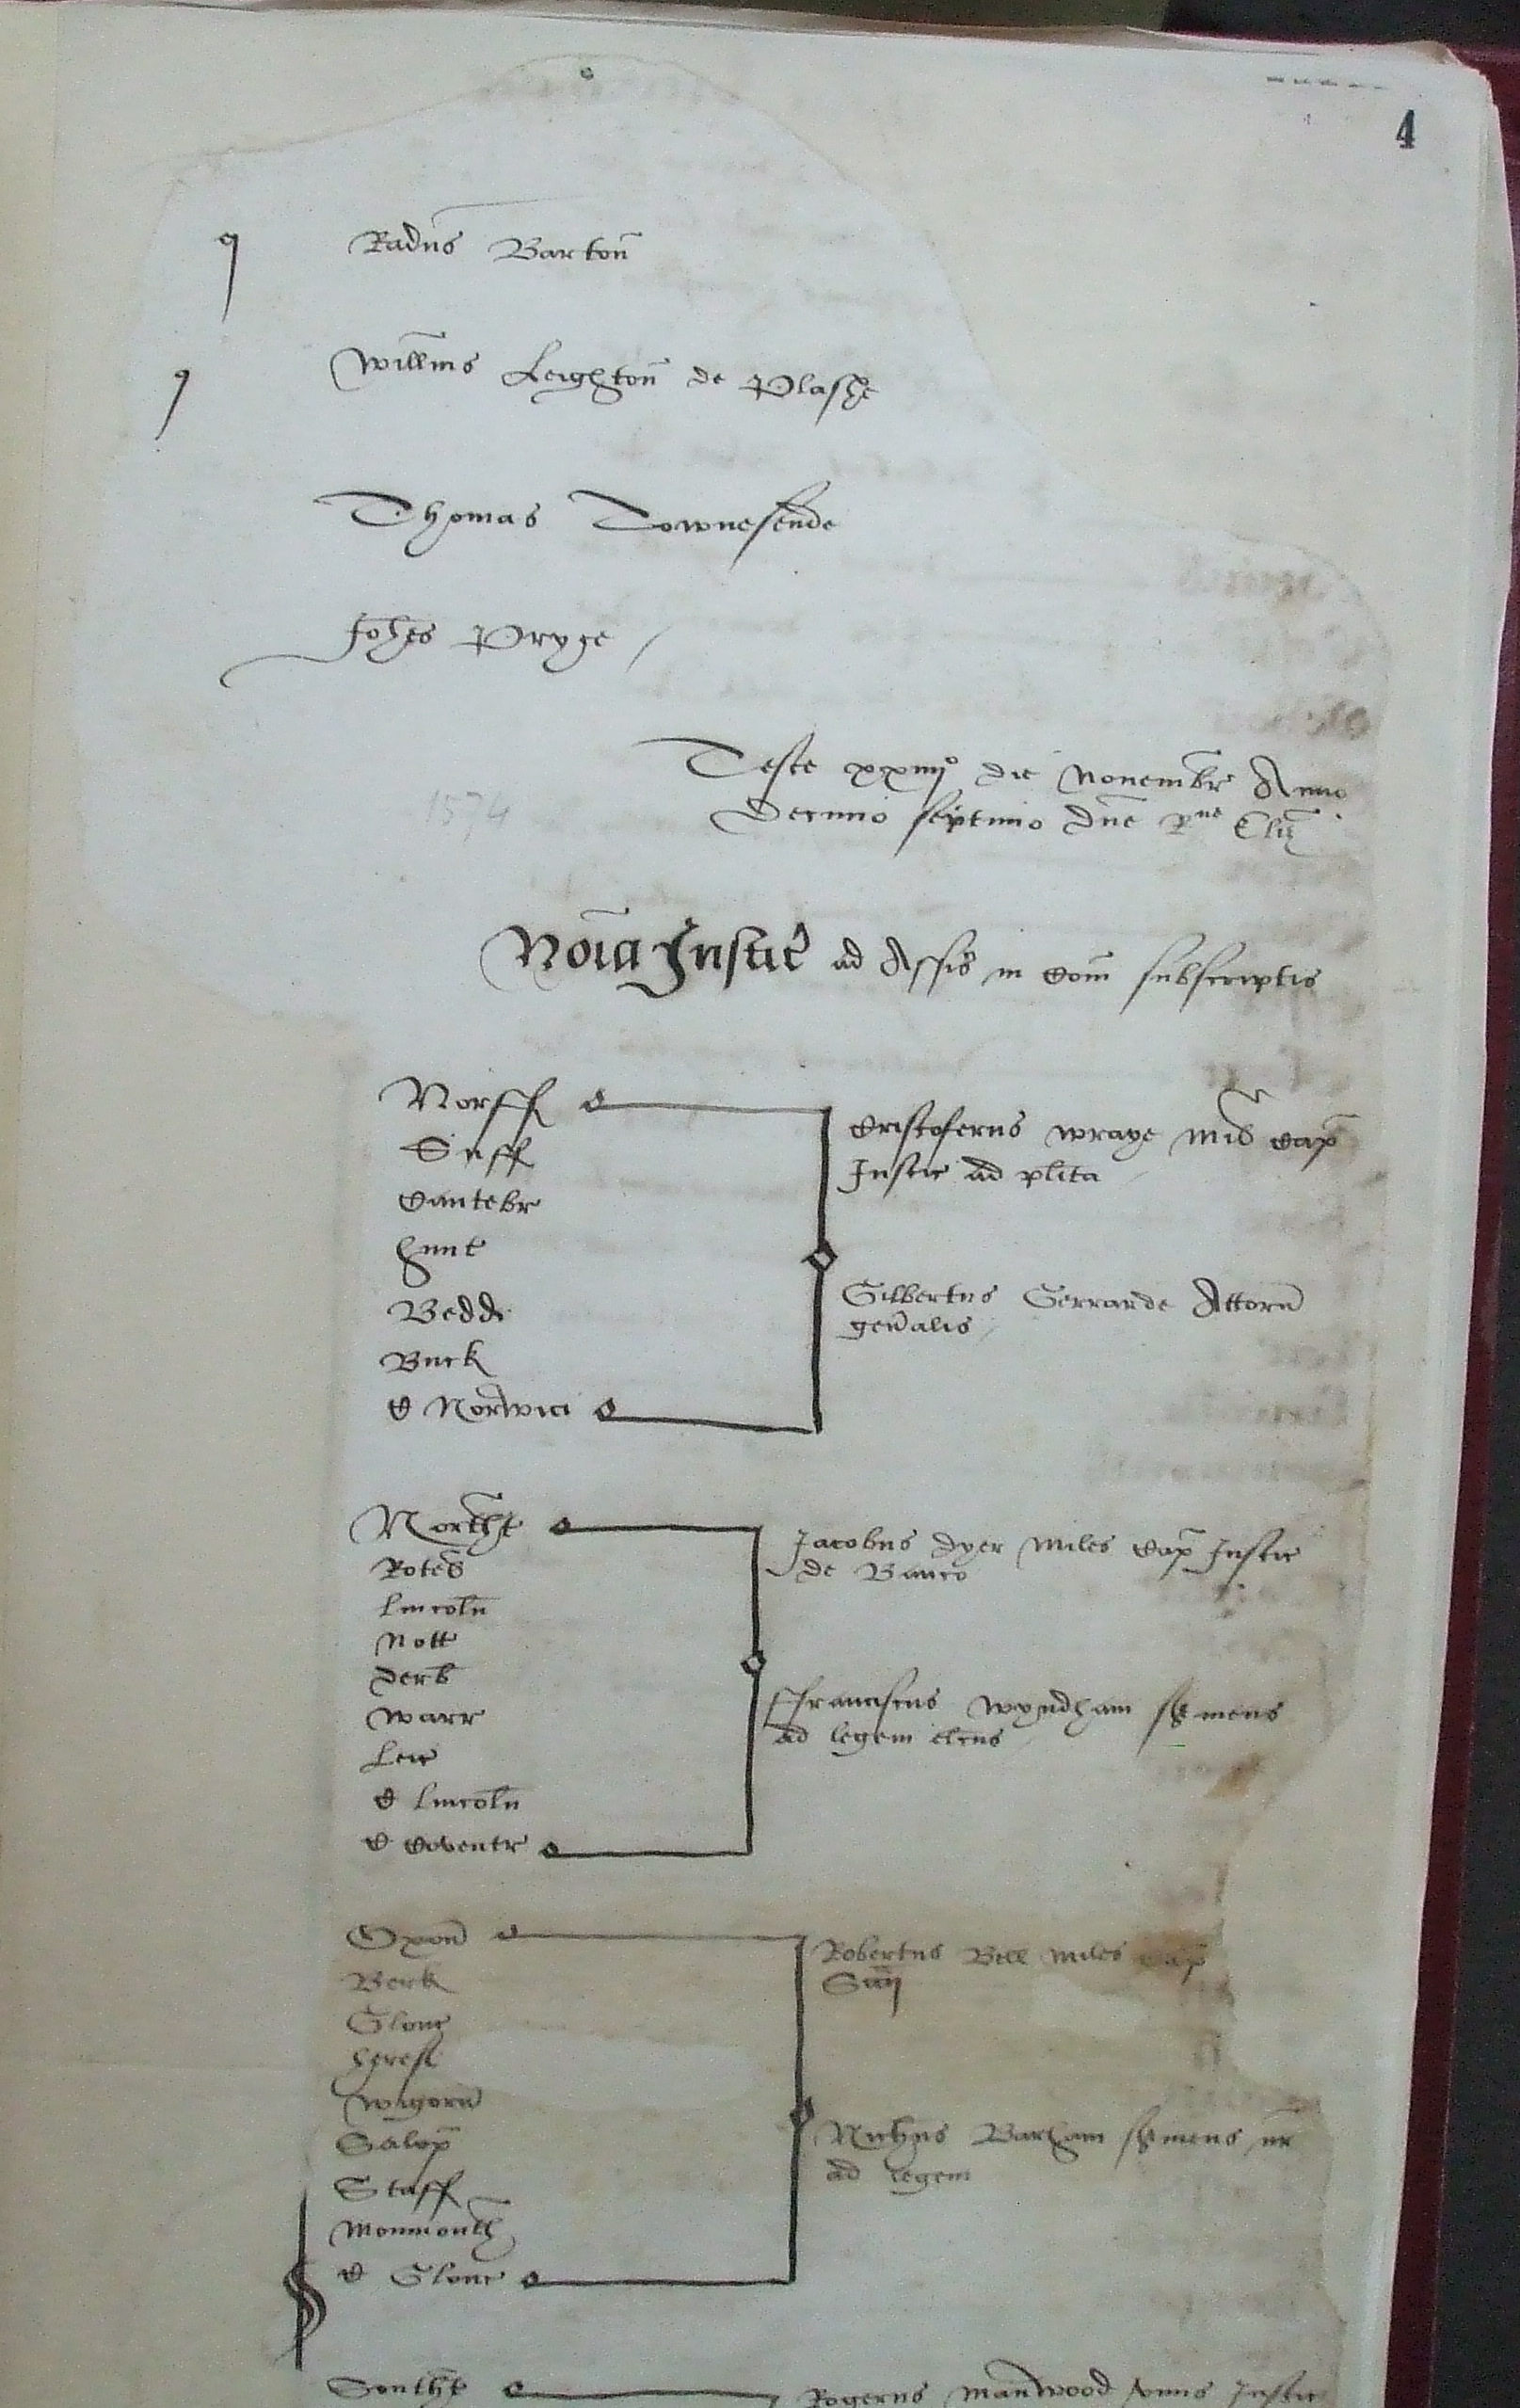 4
q Radūs Bartoñ
q Willm̄s Leightoñ de Plashe
Thomas Townesende
Joh̄es Pryce
Teste xxiiijº die Novembr Anno
1574
Decimo septimo Dn̄e Rne Eliz
No͞ia Justic ad Assis̄ in Com̄ subscriptis
Norff
Suff
Cantebr
Hunt
Bedd
Buck
C Norwici
Cristoferus Wraye Mil̄ Cap̄
Justic ad pl̄ita
Gilbertus Gerrarde Attorn̄
gen̄alis
Northt
Roteł
Lincoln̄
Nott
Derb̄
Warr
Leic
C Lincoln̄
C Coventr
Jacobus Dyer Miles Cap̄ Justic
de Banco
Ffranciscus Wyndham s͛viens
ad legem
Oxon̄
Berk
Glouc
Heref
Wigorn̄
Salop̄
Staff
Monmouth
C Glouc
Robertus Bell Miles Cap̄
Sc̄cij
Nich̄us Barham s͛viens nr̄
ad legem
Southt
Rogerus Manwood unus Justic